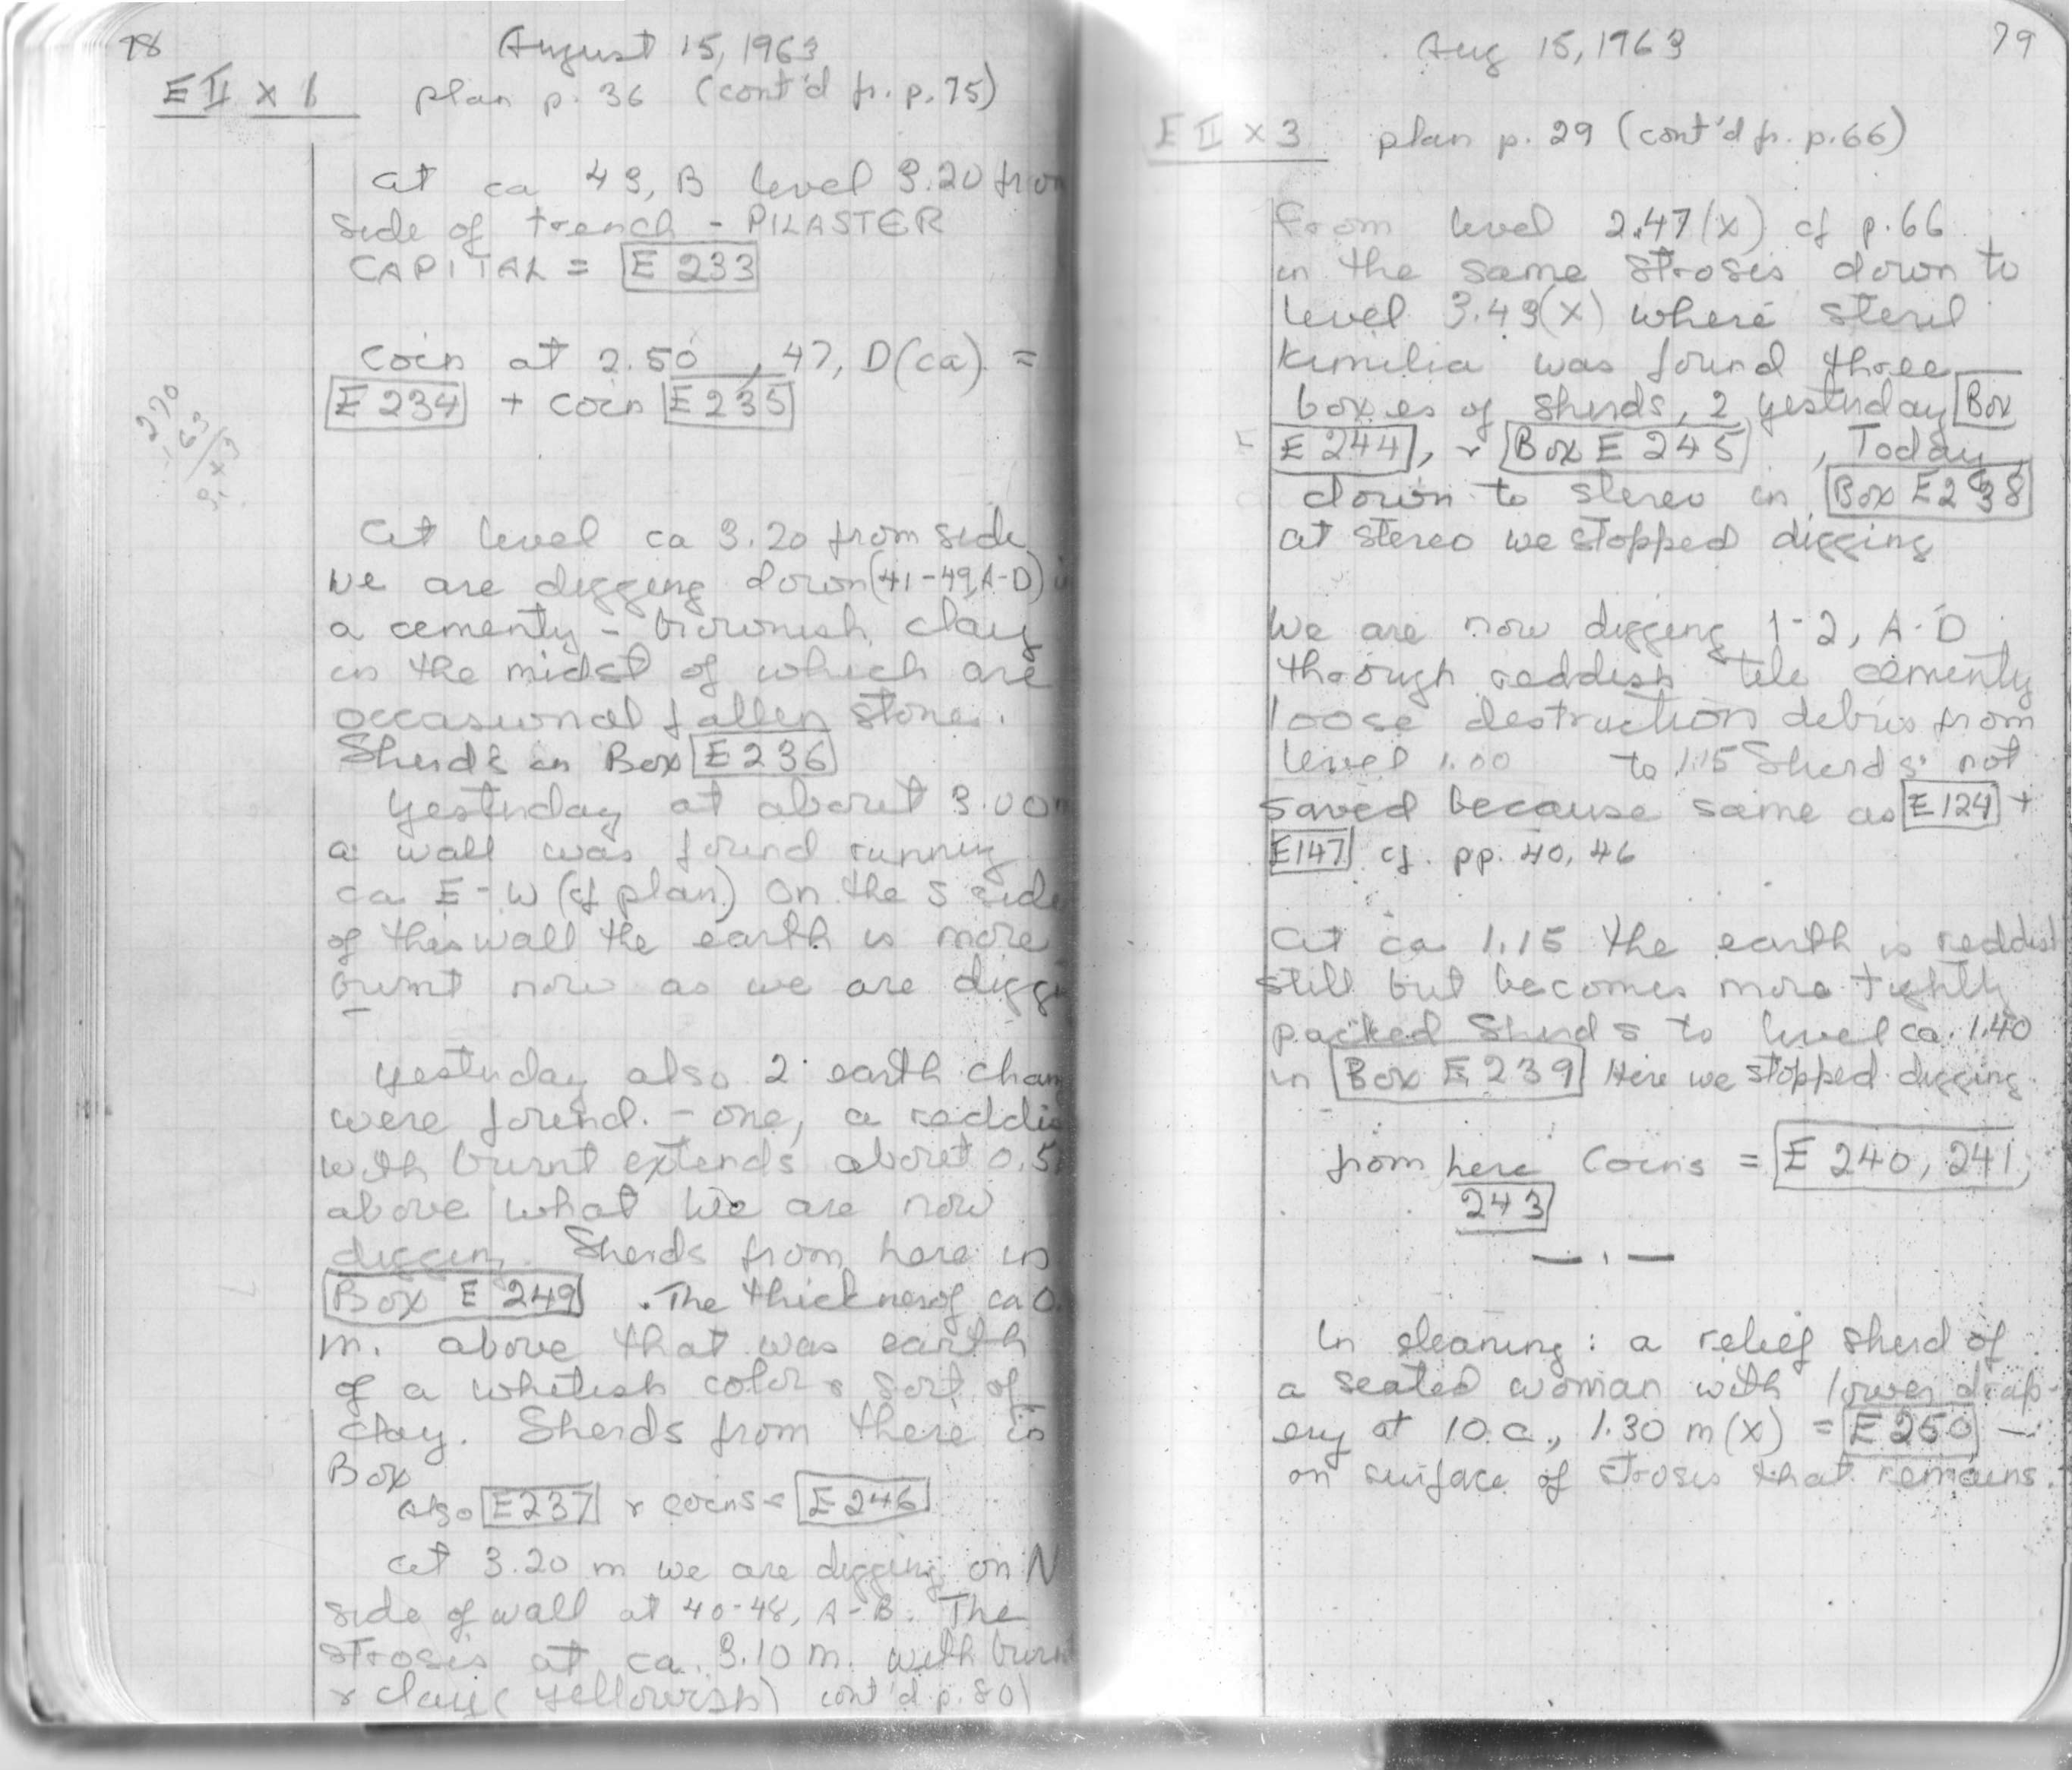 78
August 15, 1963
E II x 1 plan p. 36 (cont'd fr. p. 75)
at ca 49, B level 3.20 from
side of trench - PILASTER
CAPITAL = E 233
Coin at 2.50 , 47, D(ca) =
E 234 + coin E 235
270
63
At level ca 3.20 from side
we are digging down (41-49, A-D) i
a cementy - brownish clay
in the midst of which are
occasional fallen stones.
Sherds in Box E 236
Yesterday at about 3.00 m
a wall was found running
ca E-W (cf plan) on the S side
of this wall the earth is more
burnt now as we are diggi
Yesterday also 2 earth chan
were found. - one, a reddis
with burnt extends about 0.5
above what we are now
digging. Sherds from here in
Box E 249 . The thickness of ca 0.
m. above that was earth
of a whitish color & sort of
clay. Sherds from there in
Box
Also E 237 & coins = E 246
At 3.20 m we are digging on N
side of wall at 40-48, A-B. The
strosis at ca. 3.10 m. with burn
& clay (yellowish) cont'd p. 80)
Aug 15, 1963
79
E II x 3 plan p. 29 (cont'd fr. p. 66)
From level 2.47(x) cf p. 66
in the same strosis down to
level 3.49(x) where steril
kimilia was found three
boxes of sherds, 2 yesterday Box
E 244, & Box E 245 , Today
down to stereo in Box E 238
at stereo we stopped digging
We are now digging 1-2, A-D
through reddish tile cementy
loose destruction debris from
level 1.00 to 1.15 Sherds not
saved because same as E 124 +
E147 cf. pp. 40, 46
At ca 1.15 the earth is reddish
still but becomes more tightly
packed Sherds to level ca. 1.40
in Box E 239 Here we stopped digging
from here Coins = E 240, 241,
243
— . —
In cleaning : a relief sherd of
a seated woman with lower drap-
ery at 10.C., 1.30 m(x) = E 250 —
on surface of strosis that remains.